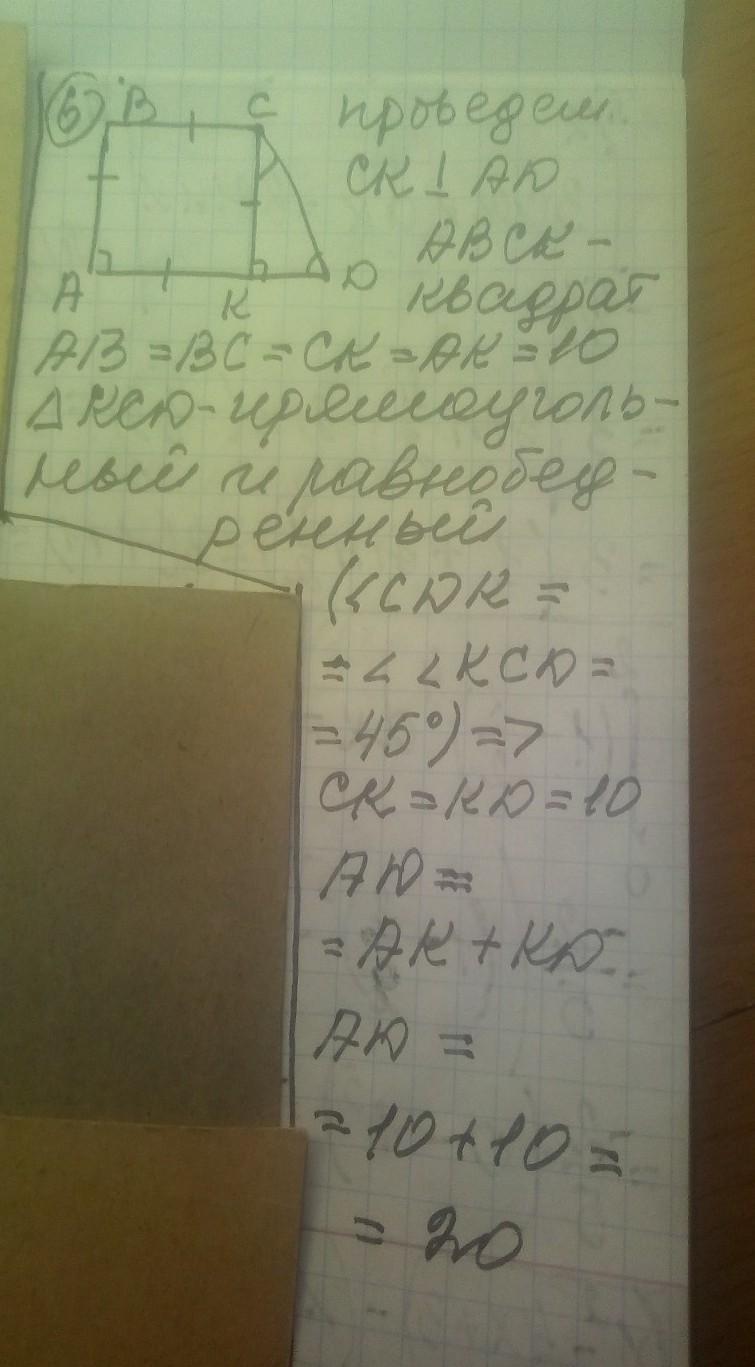 6 B C проведем
CK ⊥ AD
ABCK -
A K D квадрат
AB = BC = CK = AK = 10
Δ KCD - прямоуголь-
ный и равнобед-
ренный
(<CDK =
= < < KCD =
= 45°) =>
CK = KD = 10
AD =
= AK + KD
AD =
= 10 + 10 =
= 20